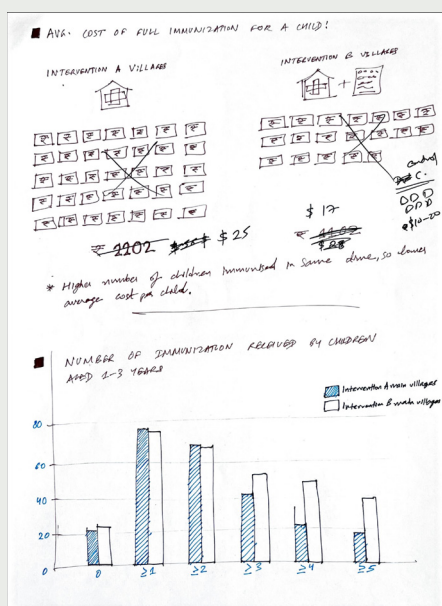 AVG. COST OF FULL IMMUNIZATION FOR A CHILD!
INTERVENTION A VILLAGES
INTERVENTION B VILLAGES
+
control
C.
$10-20
₹ 2202 $25
$17
* Higher number of children immunised in same time, so lower
average cost per child.
NUMBER OF IMMUNIZATION RECEIVED BY CHILDREN
AGED 1-3 YEARS
Intervention A main villages
Intervention B main villages
80
60
40
20
0
0 ≥1 ≥2 ≥3 ≥4 ≥5